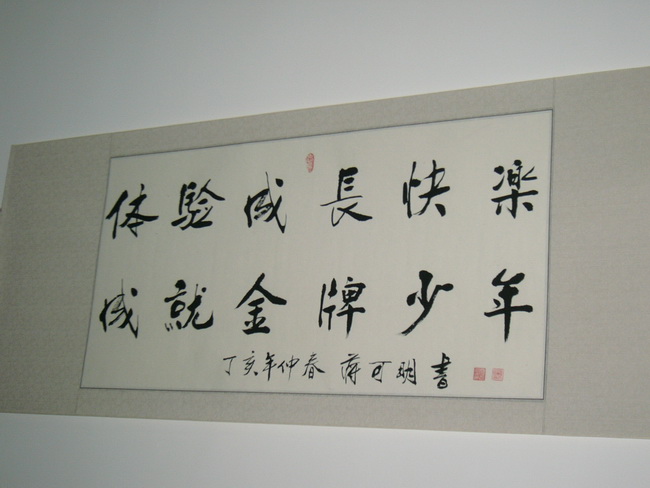 体验成長快楽
成就金牌少年
丁亥年仲春 蒋可明書